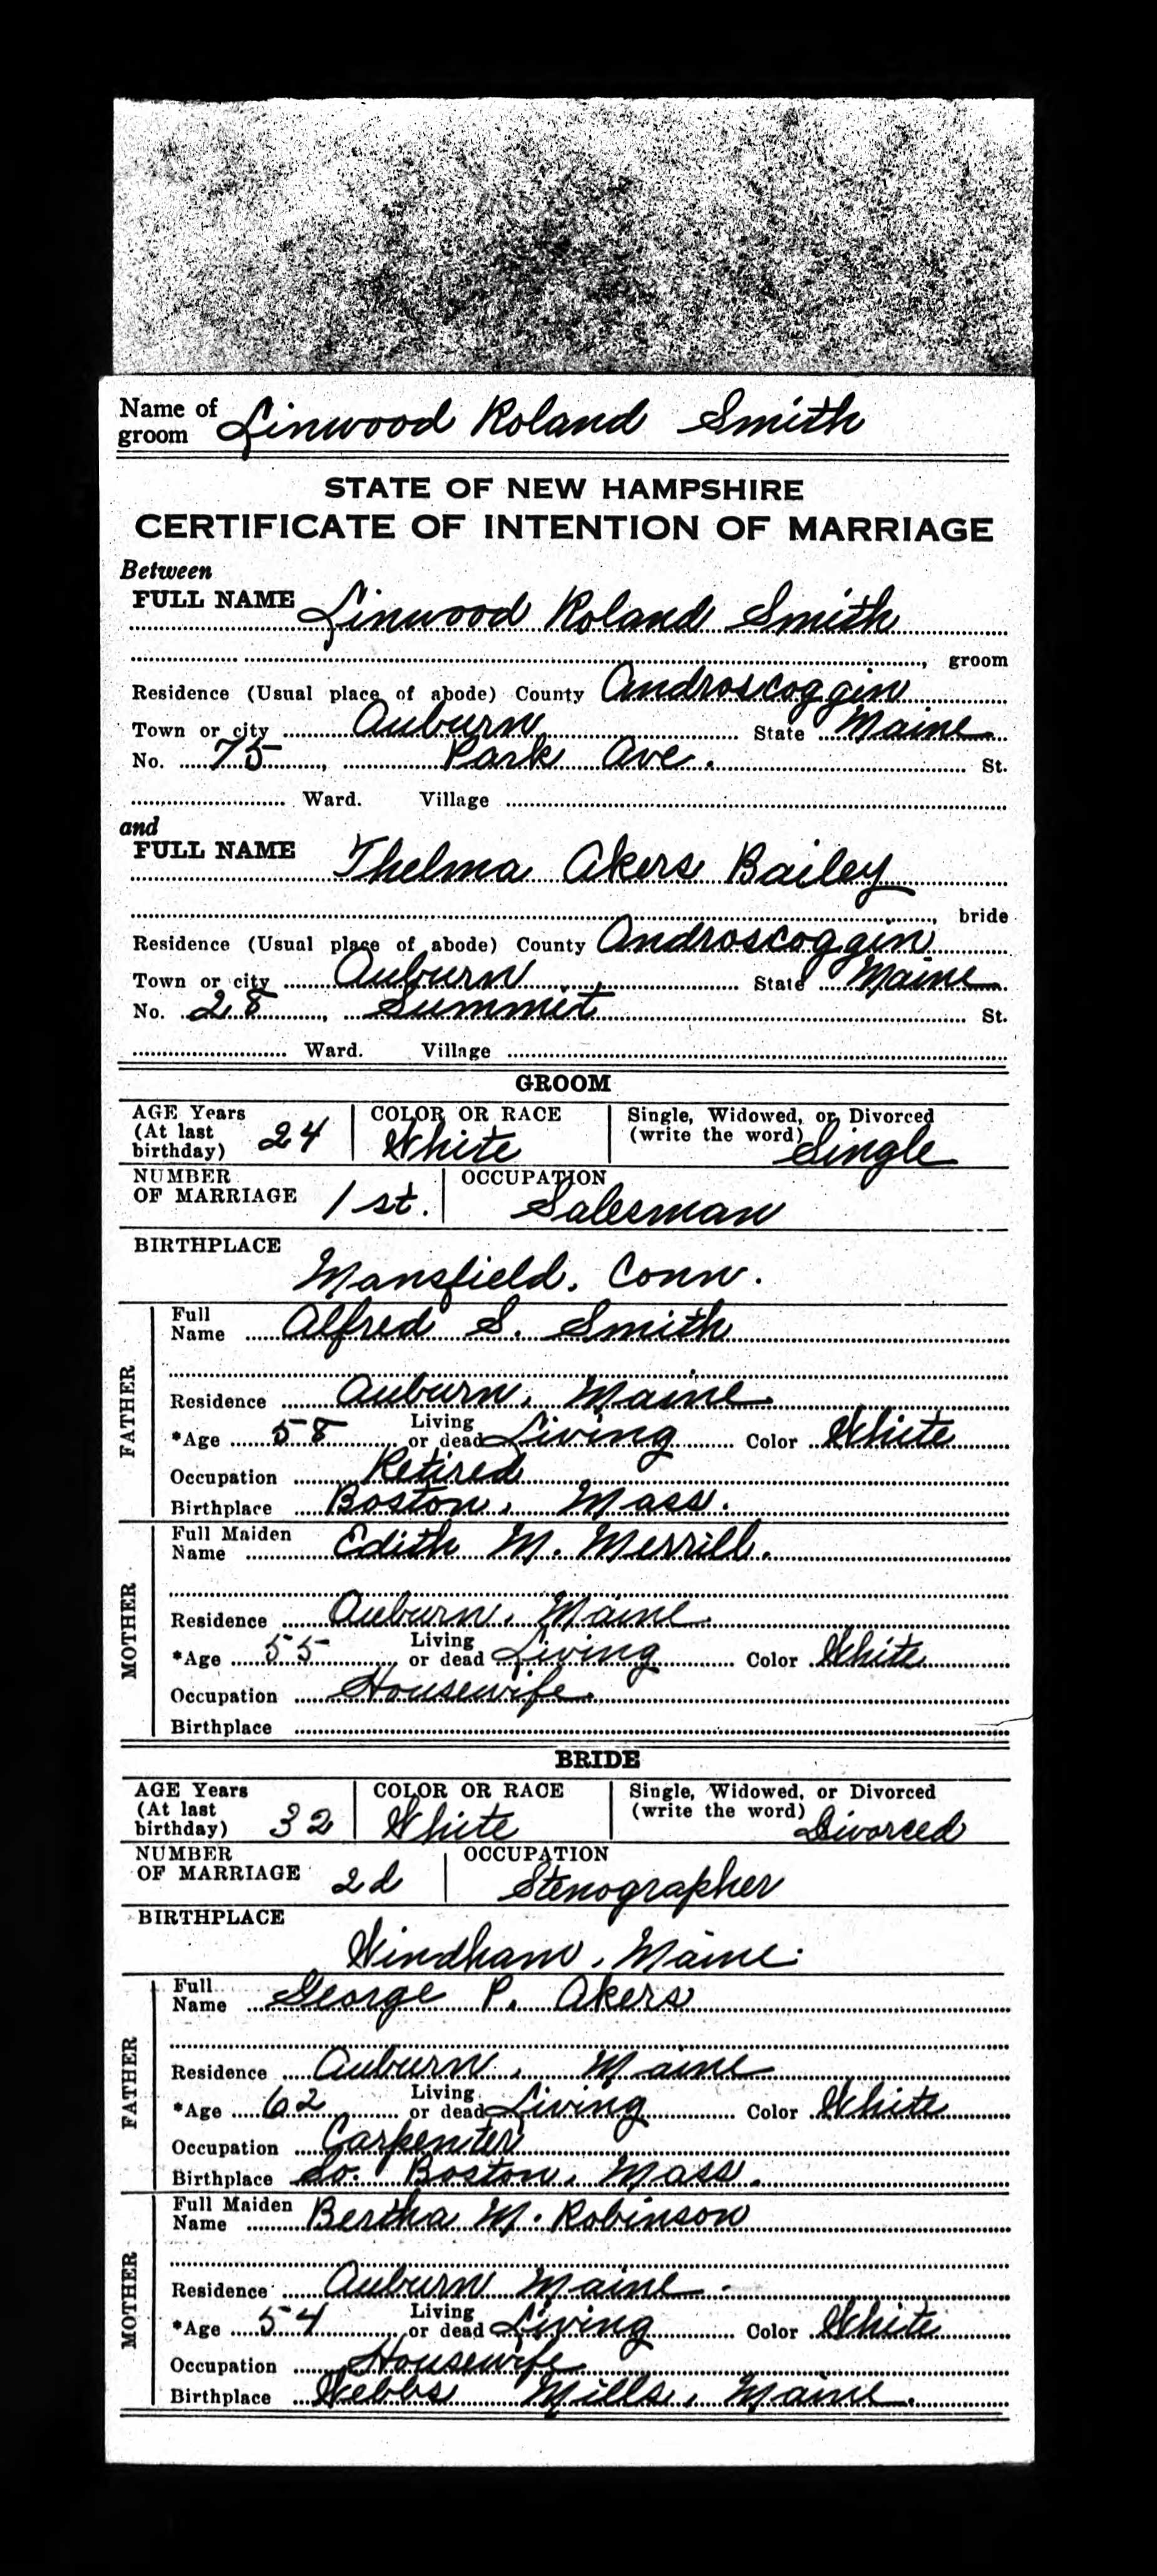 Name of groom Linwood Roland Smith
STATE OF NEW HAMPSHIRE
CERTIFICATE OF INTENTION OF MARRIAGE
Between
FULL NAME Linwood Roland Smith
, groom
Residence (Usual place of abode) County Androscoggin
Town or city Auburn State Maine
No. 75, Park Ave. St.
Ward. Village
and
FULL NAME Thelma Akers Bailey
, bride
Residence (Usual place of abode) County Androscoggin
Town or city Auburn State Maine
No. 28, Summit St.
Ward. Village
GROOM
AGE Years (At last birthday) 24 COLOR OR RACE White Single, Widowed, or Divorced (write the word) Single
NUMBER OF MARRIAGE 1st. OCCUPATION Salesman
BIRTHPLACE
Mansfield. Conn.
FATHER
Full Name Alfred S. Smith
Residence Auburn, Maine
*Age 58 Living or dead Living Color White
Occupation Retired
Birthplace Boston, Mass.
MOTHER
Full Maiden Name Edith M. Merrill.
Residence Auburn, Maine.
*Age 55 Living or dead Living Color White
Occupation Housewife.
Birthplace
BRIDE
AGE Years (At last birthday) 32 COLOR OR RACE White Single, Widowed, or Divorced (write the word) Divorced
NUMBER OF MARRIAGE 2d OCCUPATION Stenographer
BIRTHPLACE
Windham, Maine.
FATHER
Full Name George P. Akers
Residence Auburn, Maine
*Age 62 Living or dead Living Color White
Occupation Carpenter
Birthplace So. Boston, Mass.
MOTHER
Full Maiden Name Bertha M. Robinson
Residence Auburn Maine
*Age 54, Living or dead Living Color White
Occupation Housewife
Birthplace Webbs Mills, Maine.